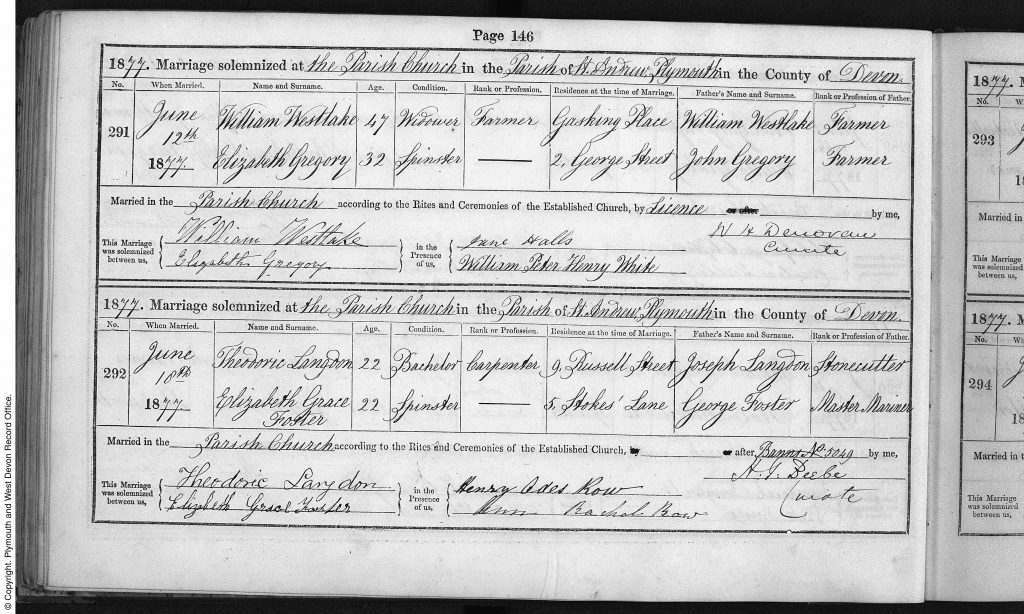 Page 146
1877. Marriage solemnized at the Parish Church in the Parish of St. Andrew, Plymouth in the County of Devon.
No. When Married. Name and Surname. Age. Condition. Rank or Profession. Residence at the time of Marriage. Father's Name and Surname. Rank or Profession of Father.
291 June 12th 1877. William Westlake 47 Widower Farmer Gasking Place William Westlake Farmer
Elizabeth Gregory 32 Spinster — 2, George Street John Gregory Farmer
Married in the Parish Church according to the Rites and Ceremonies of the Established Church, by Licence or after by me,
This Marriage was solemnized between us, William Westlake in the Presence of us, Jane Halls N H Donovan
Elizabeth Gregory William Peter Henry White Curate
1877. Marriage solemnized at the Parish Church in the Parish of St. Andrew, Plymouth in the County of Devon.
No. When Married. Name and Surname. Age. Condition. Rank or Profession. Residence at the time of Marriage. Father's Name and Surname. Rank or Profession of Father.
292 June 18th 1877. Theodoric Langdon 22 Bachelor Carpenter 9, Russell Street Joseph Langdon Stonecutter
Elizabeth Grace Foster 22 Spinster — 5, Stokes' Lane George Foster Master Mariner
Married in the Parish Church according to the Rites and Ceremonies of the Established Church, by or after, Banns No. 3049 by me,
This Marriage was solemnized between us, Theodoric Langdon in the Presence of us, Henry Row
Elizabeth Grace Foster Ann Rachel Row Curate
1877. M
No. Wh
293
Married in
This Marriage
was solemnized
between us,
1877. M
No.
294
Married in t
This Marriage
was solemnized
between us,
© Copyright. Plymouth and West Devon Record Office.